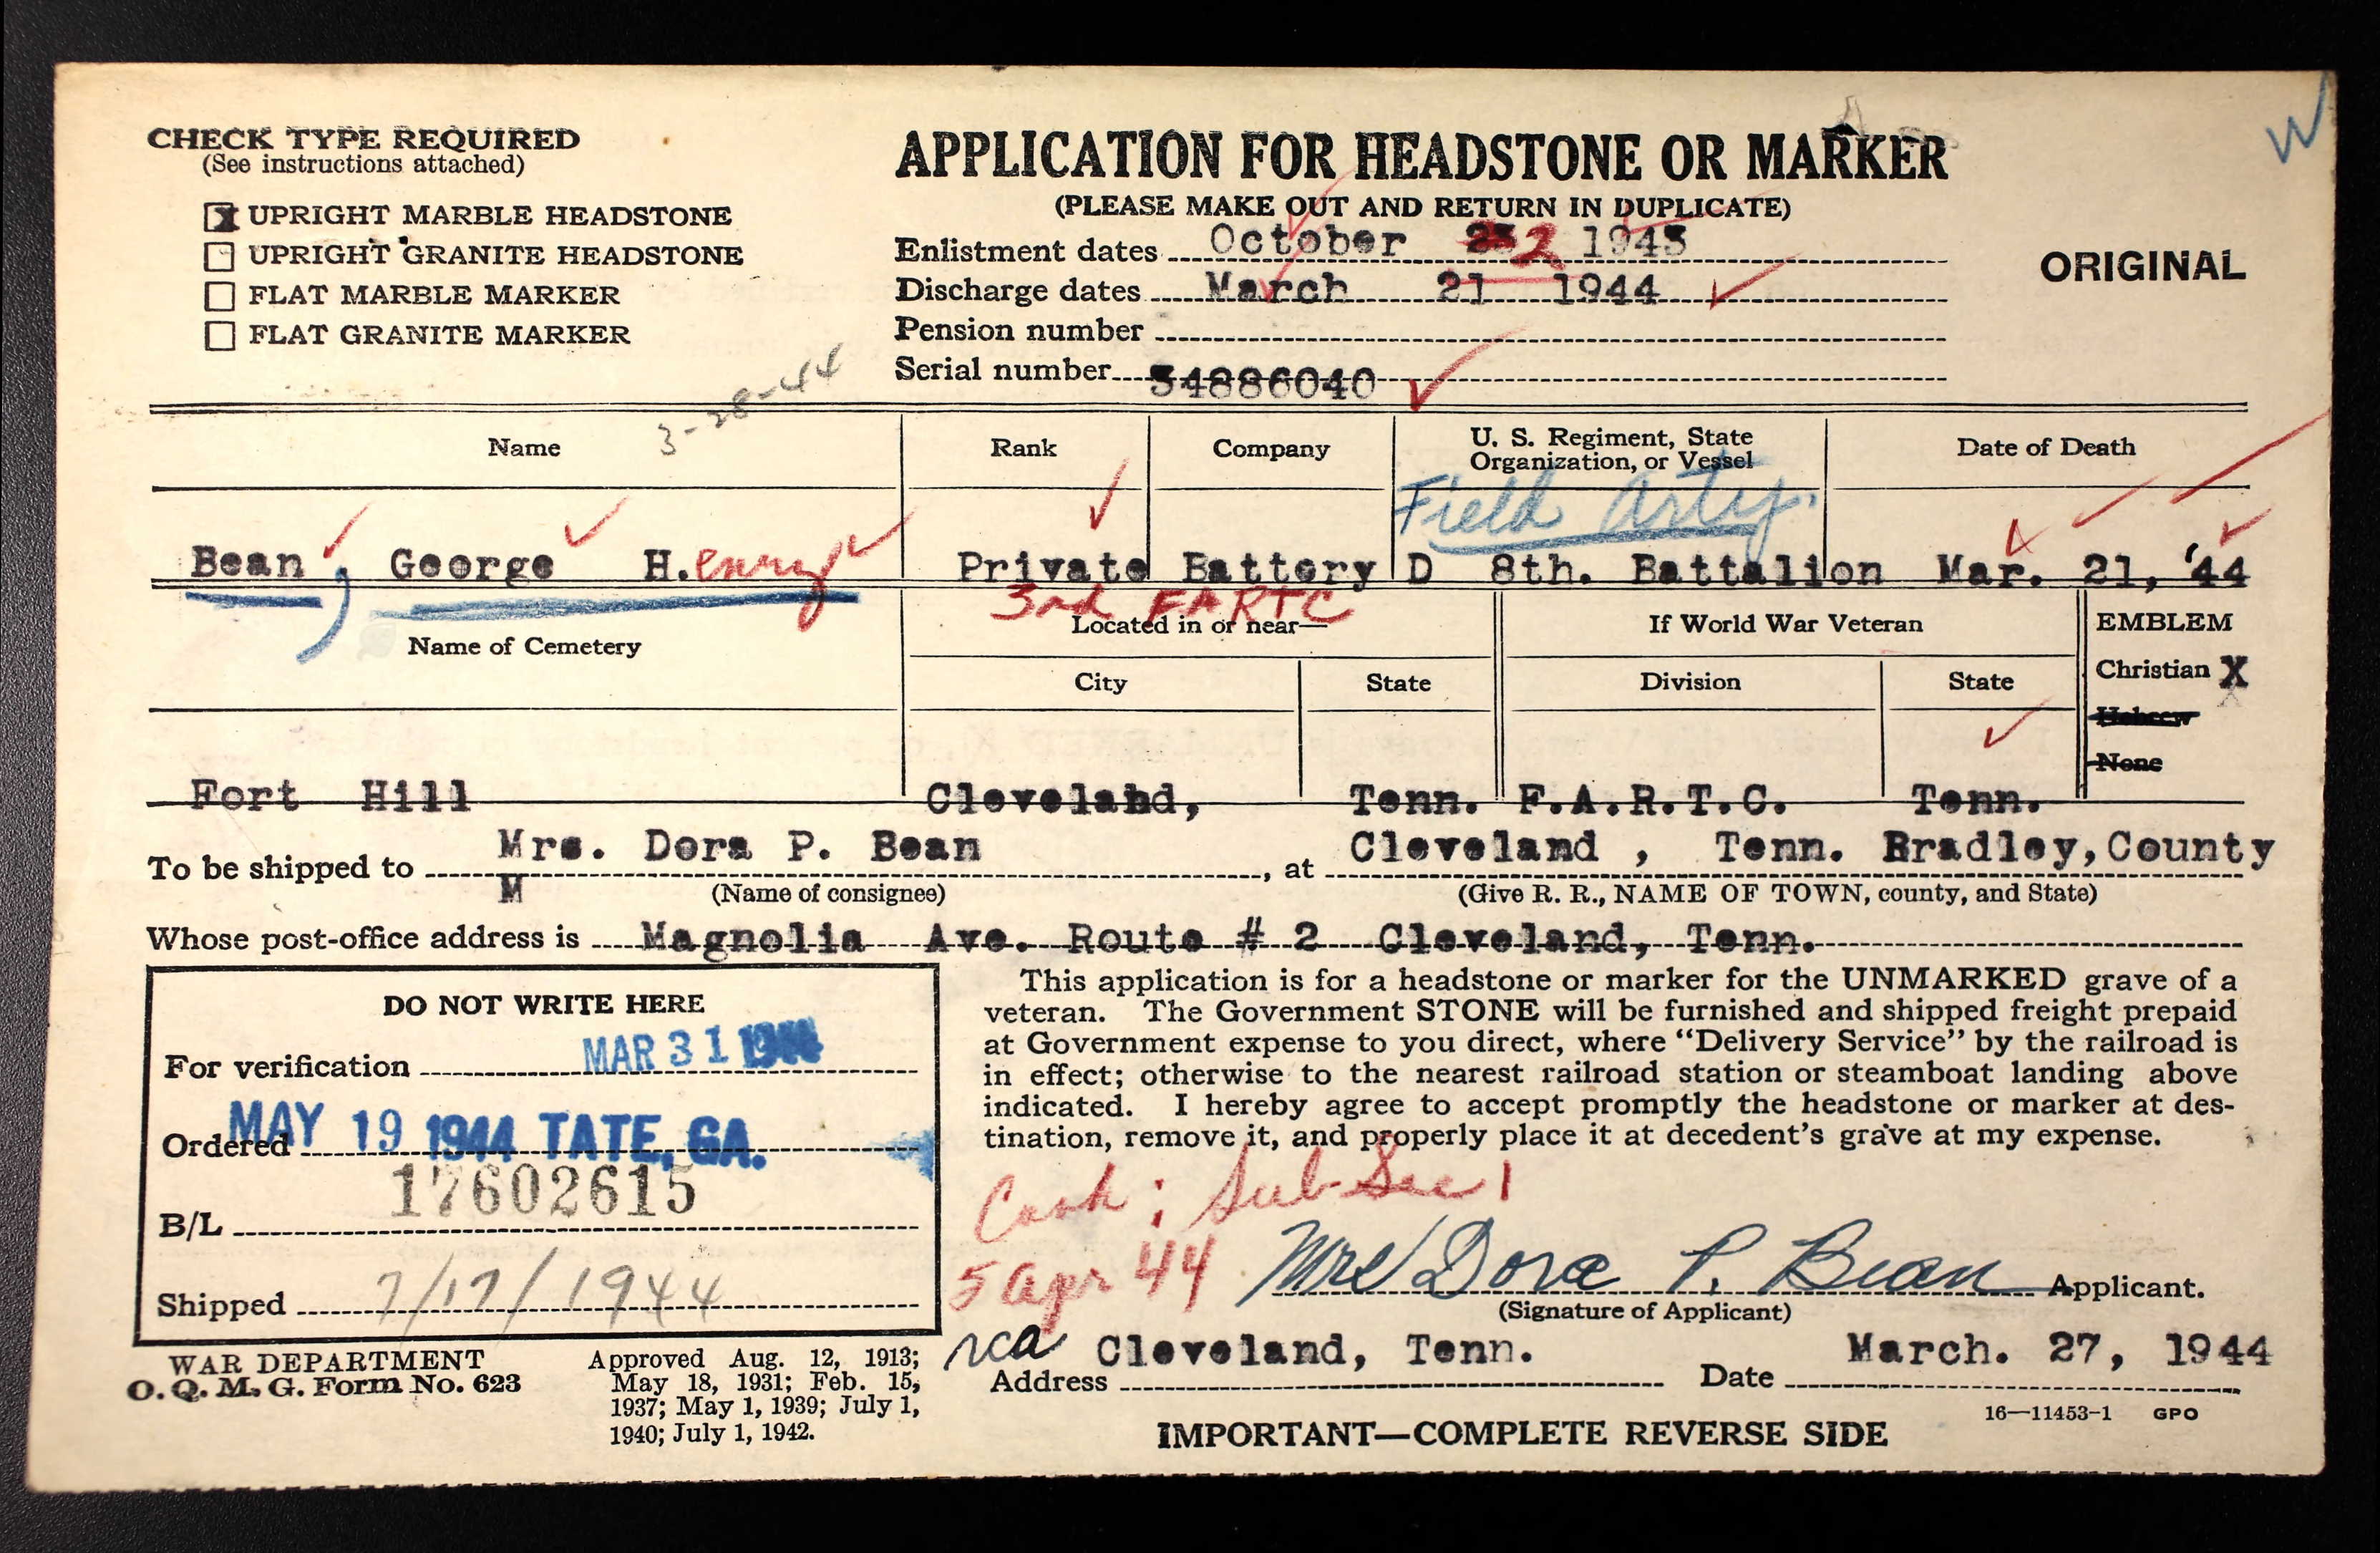 W
CHECK TYPE REQUIRED
(See instructions attached)
X UPRIGHT MARBLE HEADSTONE
UPRIGHT GRANITE HEADSTONE
FLAT MARBLE MARKER
FLAT GRANITE MARKER
APPLICATION FOR HEADSTONE OR MARKER
(PLEASE MAKE OUT AND RETURN IN DUPLICATE)
ORIGINAL
Enlistment dates October 2 1943
Discharge dates March 21 1944
Pension number
Serial number 34886040
3-28-44
Name Rank Company U. S. Regiment, State Organization, or Vessel Date of Death
Field Arty.
Bean, George H.enry Private Battery D 8th. Battalion Mar. 21, '44
3rd FARTC
Name of Cemetery Located in or near— If World War Veteran EMBLEM
City State Division State Christian X
Hebrew
None
Fort Hill Cleveland, Tenn. F.A.R.T.C. Tenn.
To be shipped to Mrs. Dora P. Bean, at Cleveland , Tenn. Bradley, County
M (Name of consignee) (Give R. R., NAME OF TOWN, county, and State)
Whose post-office address is Magnolia Ave. Route # 2 Cleveland, Tenn.
DO NOT WRITE HERE
For verification MAR 31 1944
Ordered MAY 19 1944 TATE, GA.
B/L 17602615
Shipped 7/17/1944
This application is for a headstone or marker for the UNMARKED grave of a
veteran. The Government STONE will be furnished and shipped freight prepaid
at Government expense to you direct, where "Delivery Service" by the railroad is
in effect; otherwise to the nearest railroad station or steamboat landing above
indicated. I hereby agree to accept promptly the headstone or marker at des-
tination, remove it, and properly place it at decedent's grave at my expense.
: Sub Sec 1
5 Apr 44
Mrs Dora P. Bean Applicant.
(Signature of Applicant)
rca Cleveland, Tenn. March. 27, 1944
Address Date
WAR DEPARTMENT
O. Q. M. G. Form No. 623
Approved Aug. 12, 1913;
May 18, 1931; Feb. 15,
1937; May 1, 1939; July 1,
1940; July 1, 1942.
16—11453-1 GPO
IMPORTANT—COMPLETE REVERSE SIDE